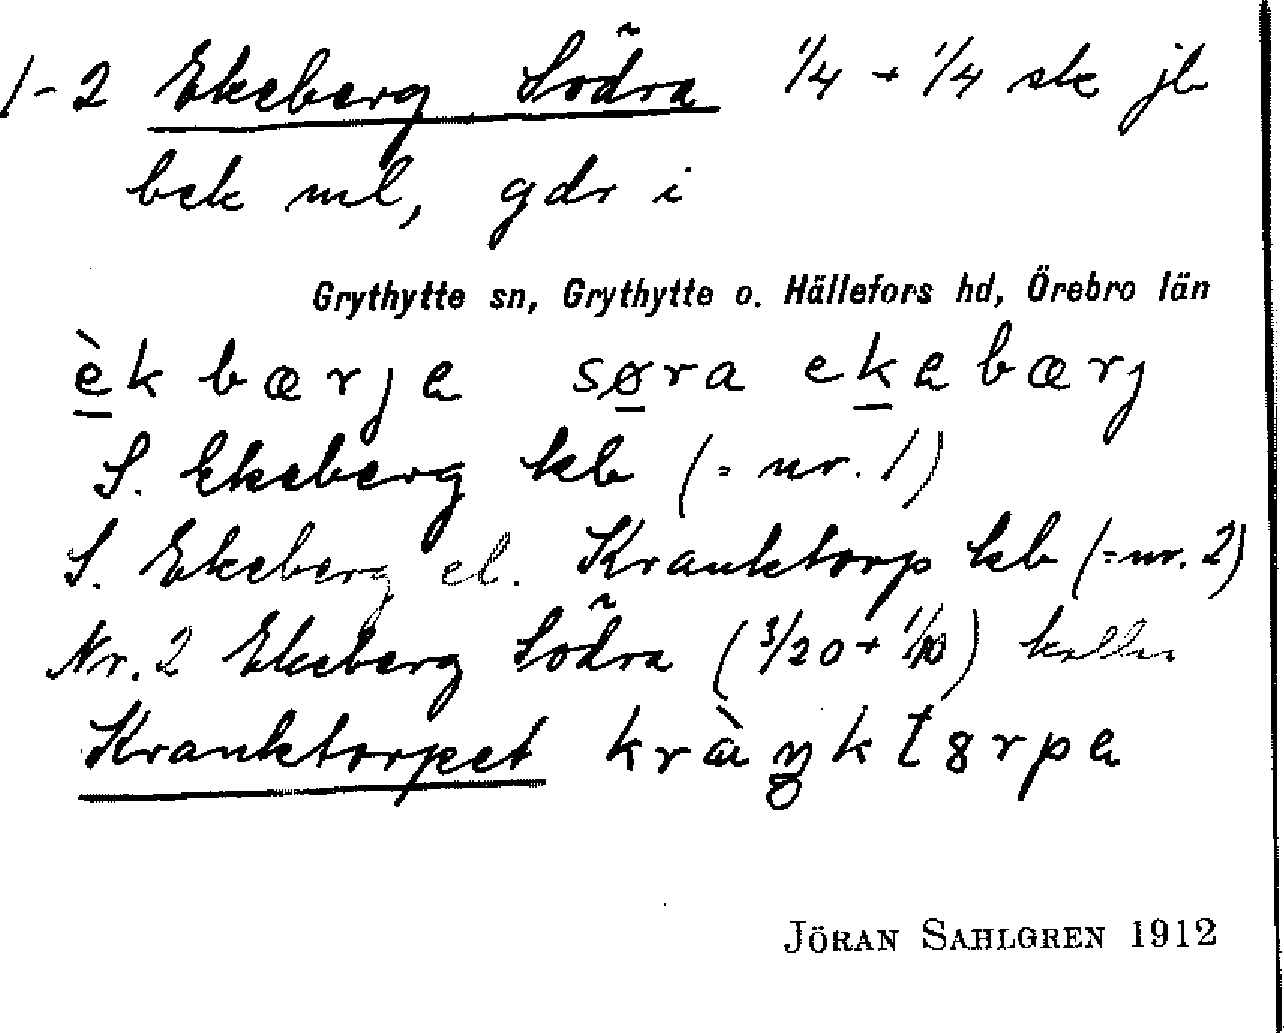 1-2 Ekeberg Södra 1/4 + 1/4 sk jb
bek ml, gdr i
Grythytte sn, Grythytte o. Hällefors hd, Örebro län
èkbærja søra ekabærj
S. Ekeberg kb (= nr. 1)
S. Ekeberg el. Kranktorp kb (= nr. 2)
Nr. 2 Ekeberg Södra (3/20 + 1/10) kallas
Kranktorpet
JÖRAN SAHLGREN 1912